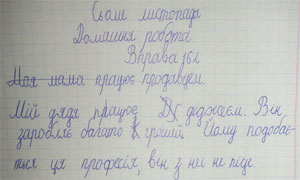 Сьоме листопада
Домашня робота
Вправа 162
Моя мама працює продавцем.
Мій дядя працює Ді-джеєм. Він
заробляє багато грошей. Йому подобає-
ться ця професія, він з неї не піде.